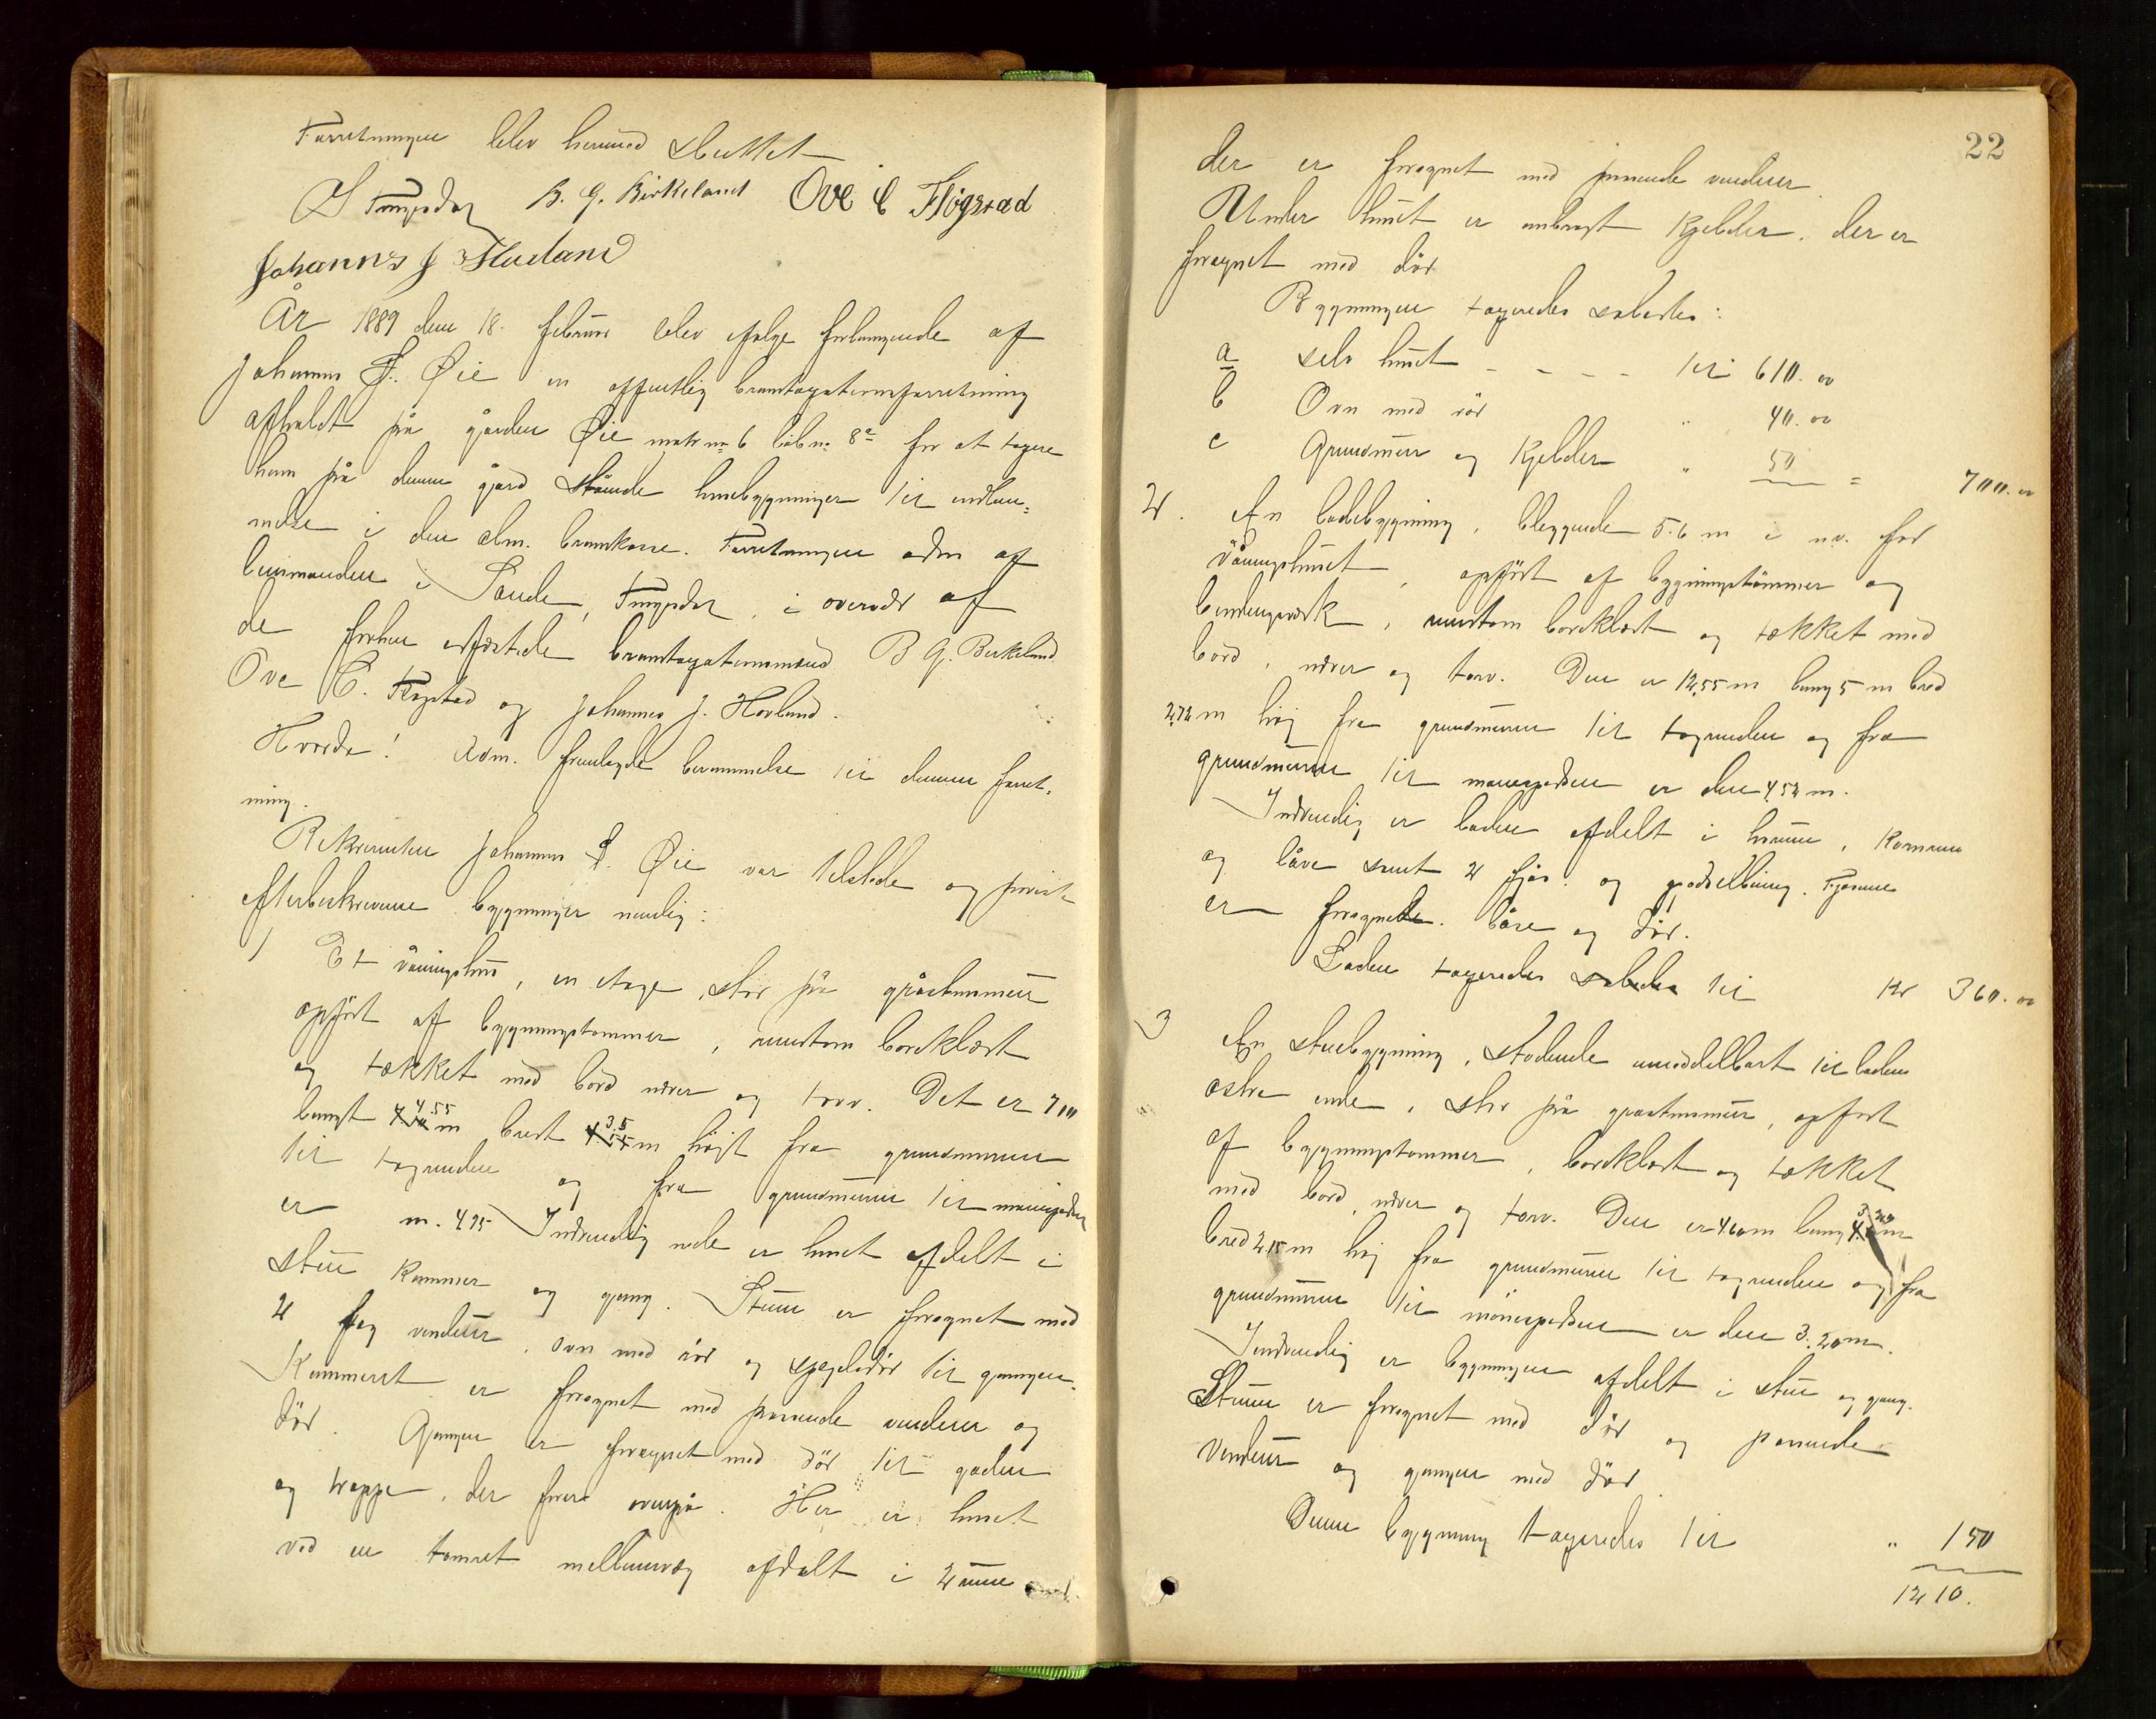 Forretningen blev hermed sluttet
B. G. Birkeland Ove C Flögstad
Johannes J Hovland
År 1889 den 18. februar blev ifølge forlangende af
Johannes Øie en offentlig brandtaxationsforretning
afholdt på gården Øie matr no 6 löb no 8a for at taxere
ham på denne gård stående husebygninger til indlem=
melse i den alm. brankasse. Forretningen adm af
lensmanden i Sande, i overvær af
de forhen edfæstede brandtaxationsmænd B G. Birkeland
Ove C. Flogstad og Johannes J. Hovland.
Hvorda! Adm. fremlagde berammelse til denne forret-
ning.
Rekvirenten Johannes Øie var tilstede og påviste
efterbeskrevne bygninger nemlig:
1) Et våningshus, en etage, står på gråstensmur
opfört af bygningstømmer, runtom bordklædt
og tækket med bord næver og torv. Det er 7 10
langt 4.55 m bredt 3.5 m höjt fra grundmuren
til tagrenden og fra grundmuren til mønespidsen
er m. 4.95 Indvendig nede er huset afdelt i
stue kammer og gang. Stuen er forsynet med
2 fag vinduer, ovn med rör og spegeldör til gangen.
Kammeret er forsynet med passende vinduer og
dör. Gangen er forsynet med dör til gården
og trappe, der förer ovenpå. Her er huset
ved en tømret mellemvæg afdelt i 2 rum
22
der er forsynet med passende vinduer.
Under huset er anbragt kjelder, der er
forsynet med dör
Bygningen taxeredes saledes:
a selv huset - - - - til 610. 00
b Ovn med rör " 40. 00
c Grundmur og kjelder " 50 = 700. 00
2. En ladebygning, liggende 5.6 m i nv. for
våningshuset, opfört af bygningstömmer og
bindingsverk, runtom bordklædt og tækket med
bord, næver og torv. Den er 12,55 m lang 5 m bred
2,72 m höj fra grundmuren til tagrenden og fra
grundmuren til mønespidsen er den 4,52 m.
Indvendig er laden afdelt i
og låve samt 2 fjøs og gjödselbinge. Fjøsene
er forsynede båse og dör.
Laden taxeredes saledes til kr 360. 00
3 En stuebygning, stødende umiddelbart til ladens
østre ende, står på gråstensmur, opført
af bygningstømmer, bordklædt og tækket
med bord, næver og torv. Den er 4.60 m lang 3.20 m
bred 2,15 m höj fra grundmuren til tagrenden og fra
grundmuren til mönespidsen er den 3.20 m.
Indvendig er bygningen afdelt i stue og gang.
Stuen er forsynet med dör og passende
vinduer og gangen med dör
Denne bygning taxeredes til " 150
1210.